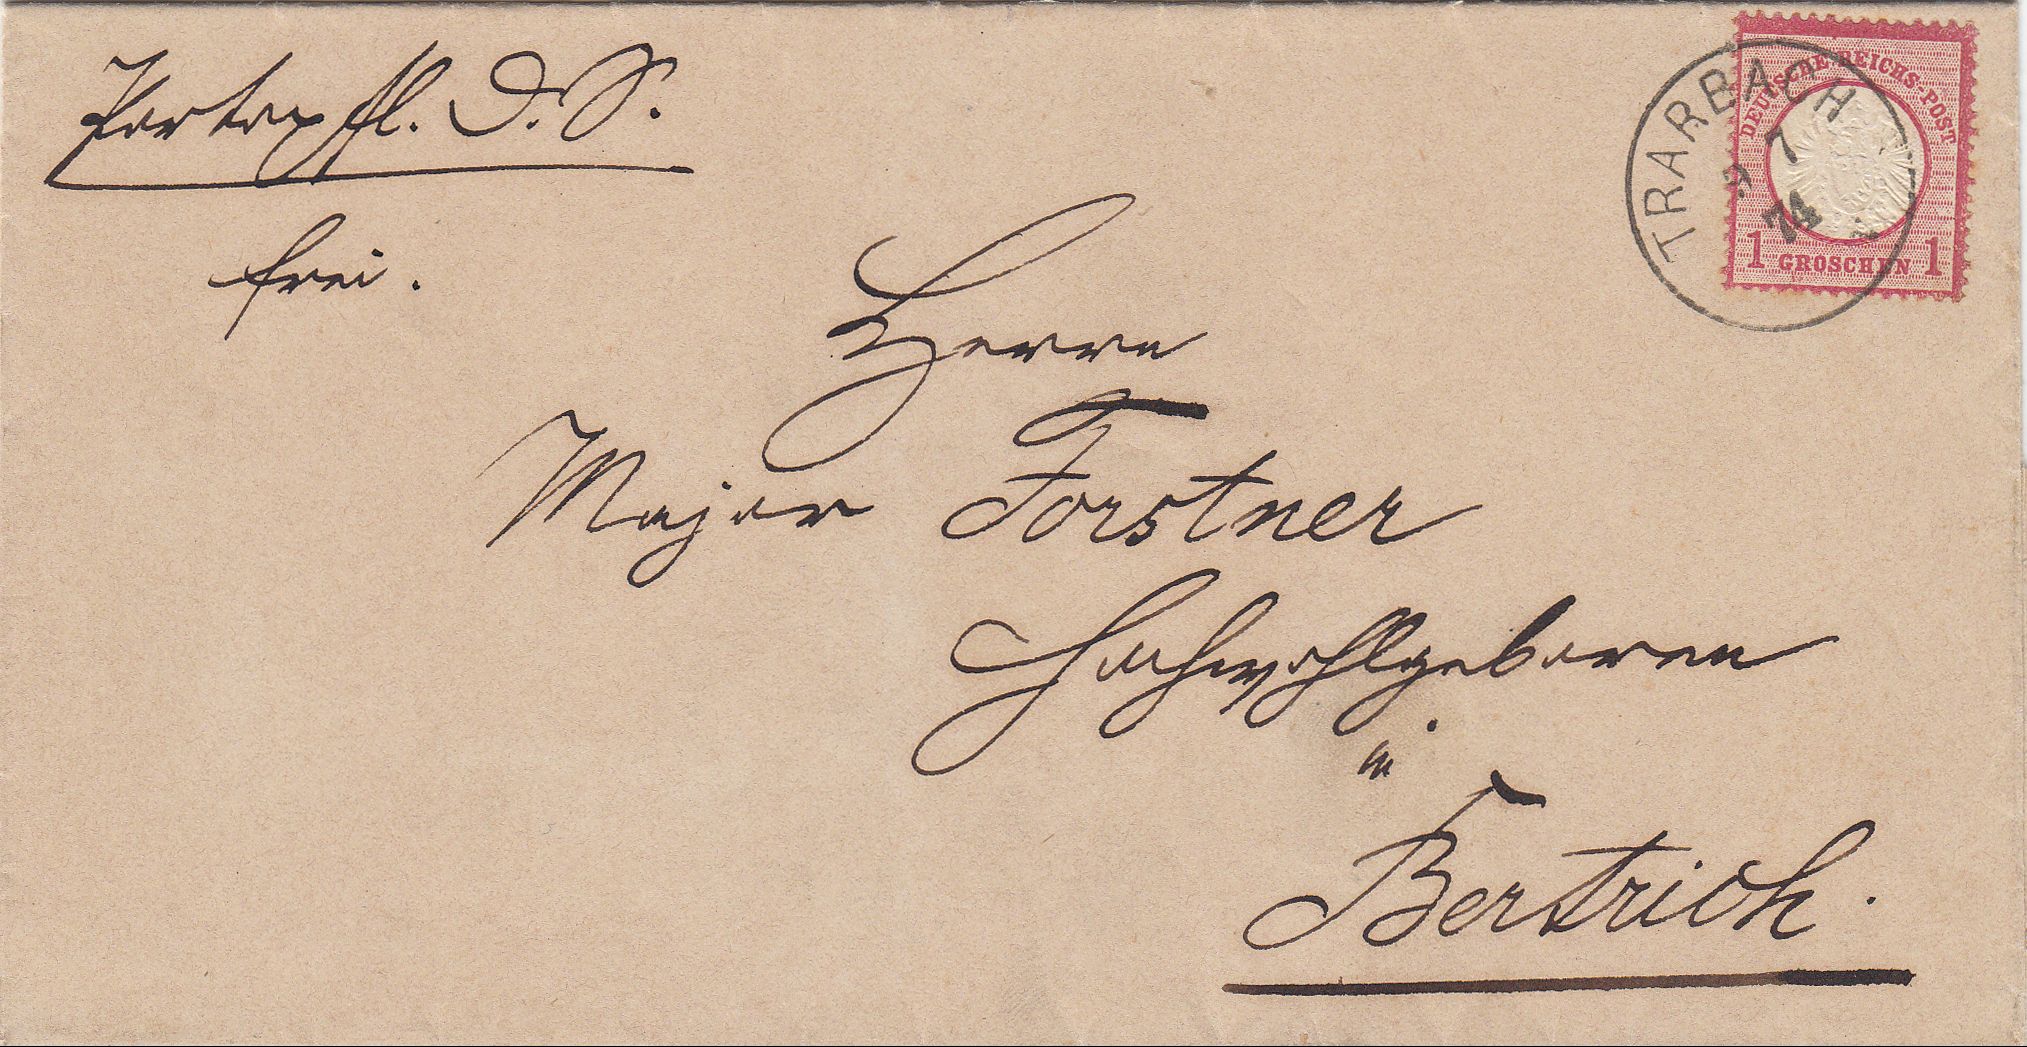 Portopfl. D. S.
frei.
Herrn
Major Forstner
Hochwohlgeboren
in
Bertrich.
TRARBACH
9 7
74
DEUTSCHE REICHS-POST
1 GROSCHEN 1